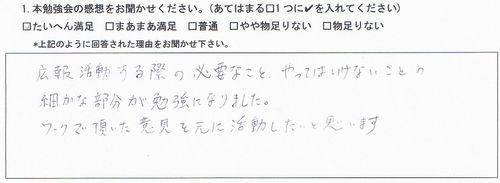 1. 本勉強会の感想をお聞かせください。（あてはまる□1つに✔を入れてください）
☑たいへん満足 □まあまあ満足 □普通 □やや物足りない □物足りない
*上記のように回答された理由をお聞かせ下さい。
広報活動する際の必要なこと、やってはいけないことの
細かな部分が勉強になりました。
ワークで頂いた意見を元に活動したいと思います